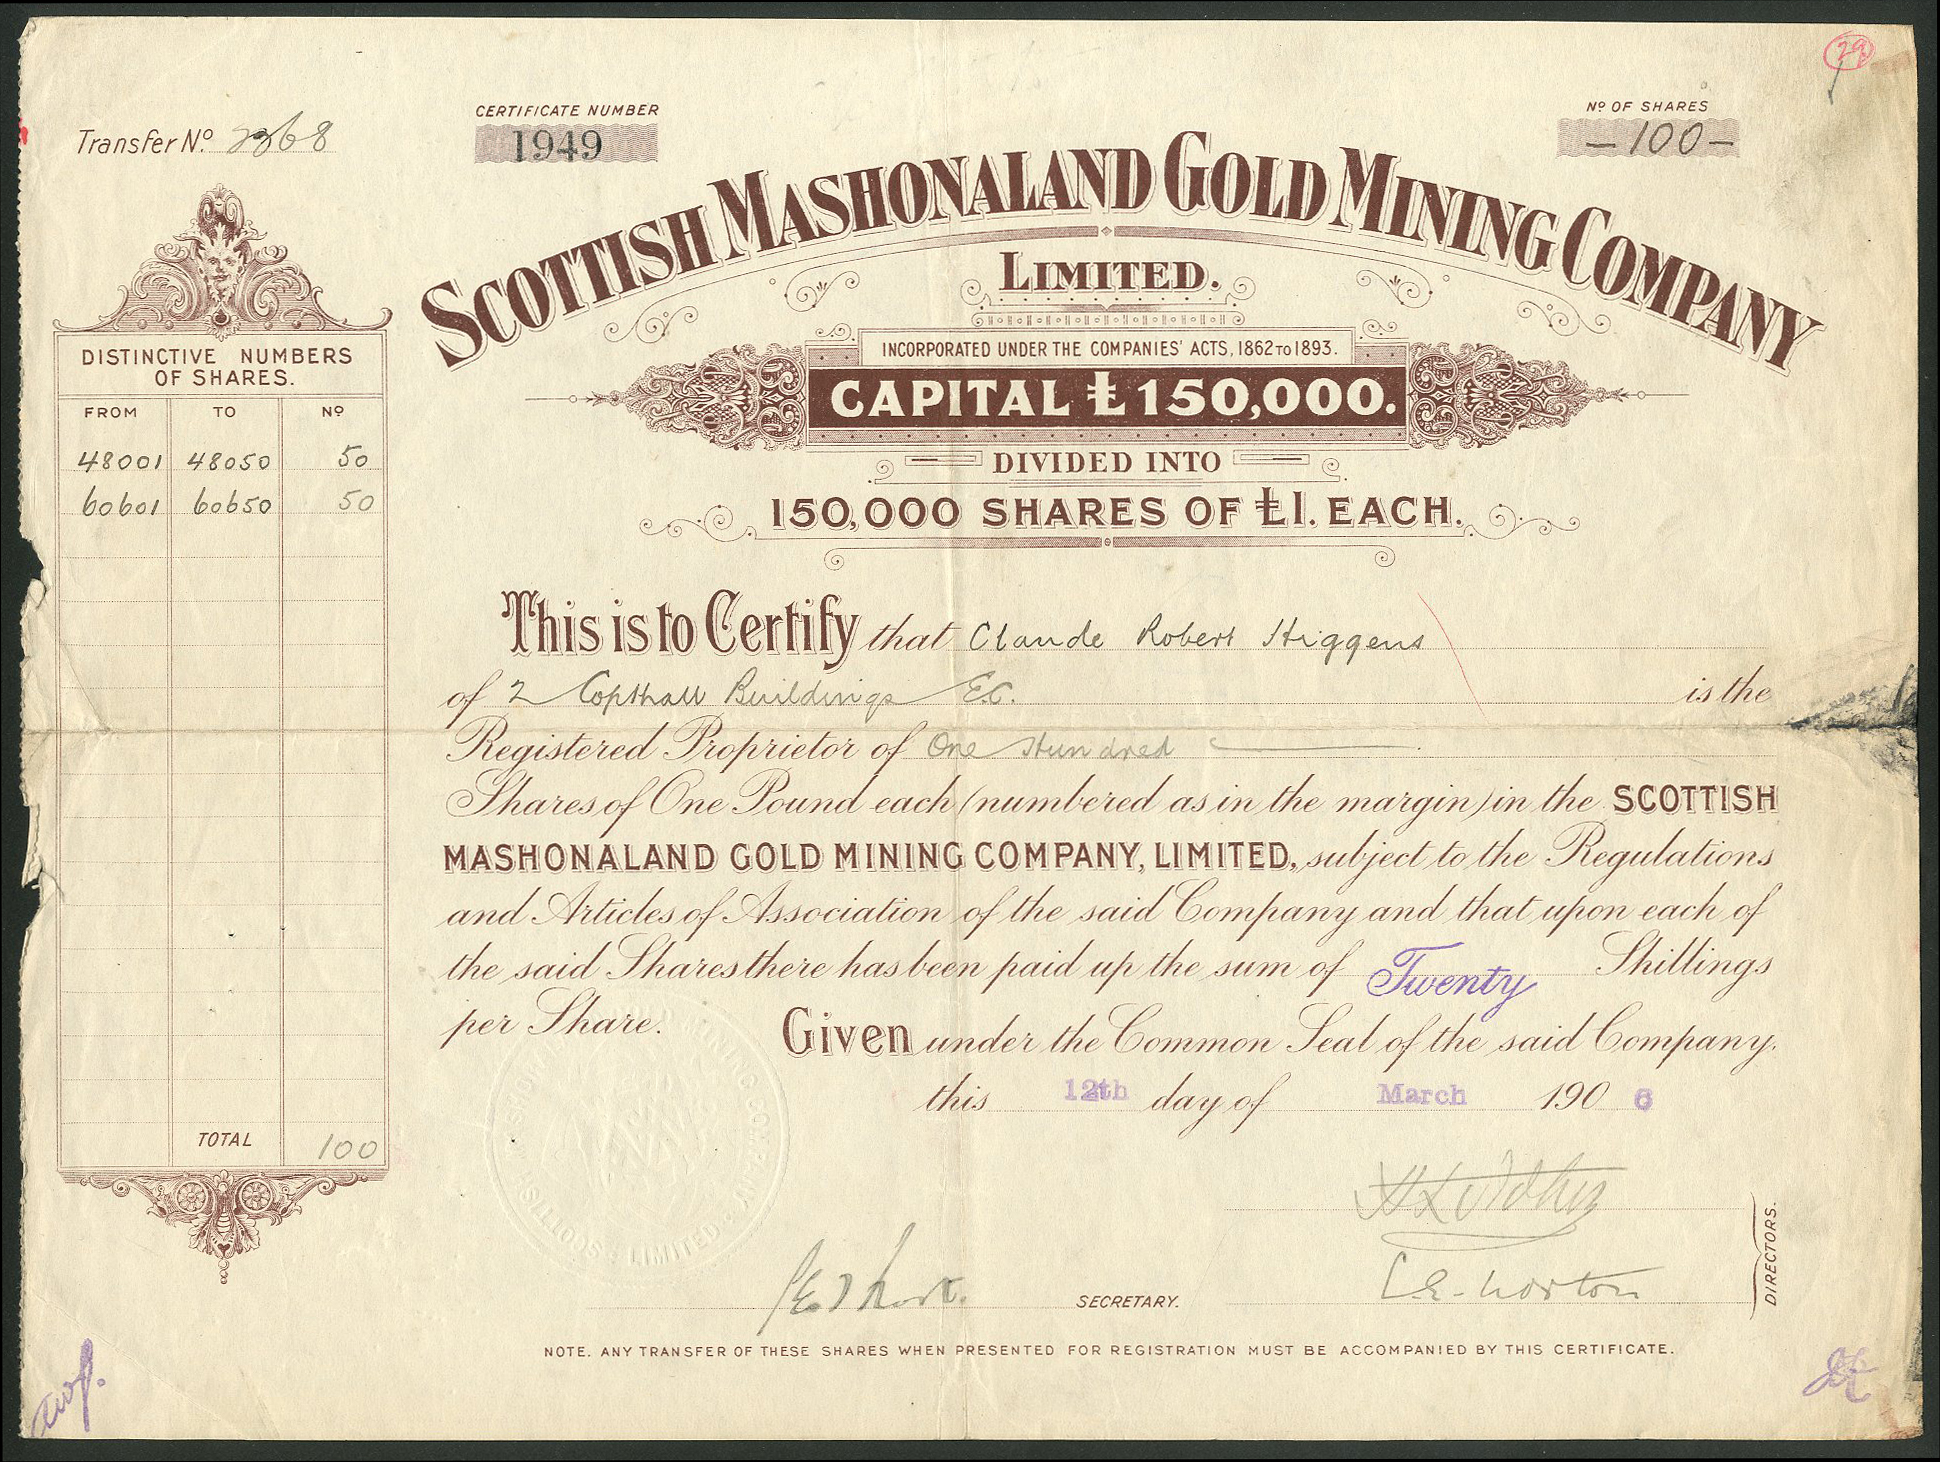 29
Transfer No. 2368
CERTIFICATE NUMBER
1949
No OF SHARES
—100—
SCOTTISH MASHONALAND GOLD MINING COMPANY
LIMITED.
INCORPORATED UNDER THE COMPANIES' ACTS, 1862 TO 1893.
CAPITAL £150,000.
DIVIDED INTO
150,000 SHARES OF £1. EACH.
DISTINCTIVE NUMBERS
OF SHARES.
FROM TO No
48001 48050 50
60601 60650 50
TOTAL 100
This is to Certify that Claude Robert Higgens
of 2 Copthall Buildings E.C. is the
Registered Proprietor of One Hundred
Shares of One Pound each (numbered as in the margin) in the SCOTTISH
MASHONALAND GOLD MINING COMPANY, LIMITED, subject to the Regulations
and Articles of Association of the said Company and that upon each of
the said Shares there has been paid up the sum of Twenty Shillings
per Share.
Given under the Common Seal of the said Company.
this 12th day of March 1906
SCOTTISH MINING COMPANY LIMITED
L.E. Norton
DIRECTORS.
SECRETARY.
NOTE. ANY TRANSFER OF THESE SHARES WHEN PRESENTED FOR REGISTRATION MUST BE ACCOMPANIED BY THIS CERTIFICATE.